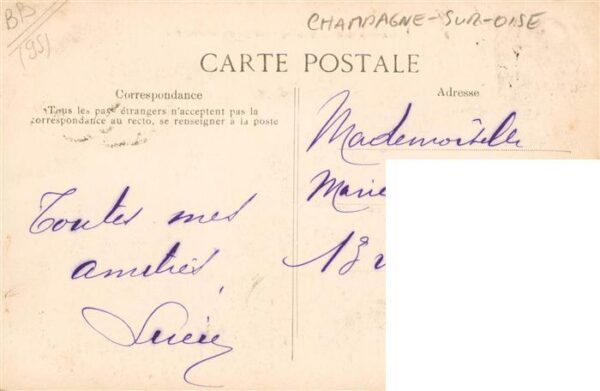 BB
(95)
CHAMPAGNE-SUR-OISE
CARTE POSTALE
Correspondance
Tous les pays étrangers n'acceptent pas la
correspondance au recto, se renseigner à la poste
Adresse
Toutes mes
amitiés
Mademoiselle
Marie